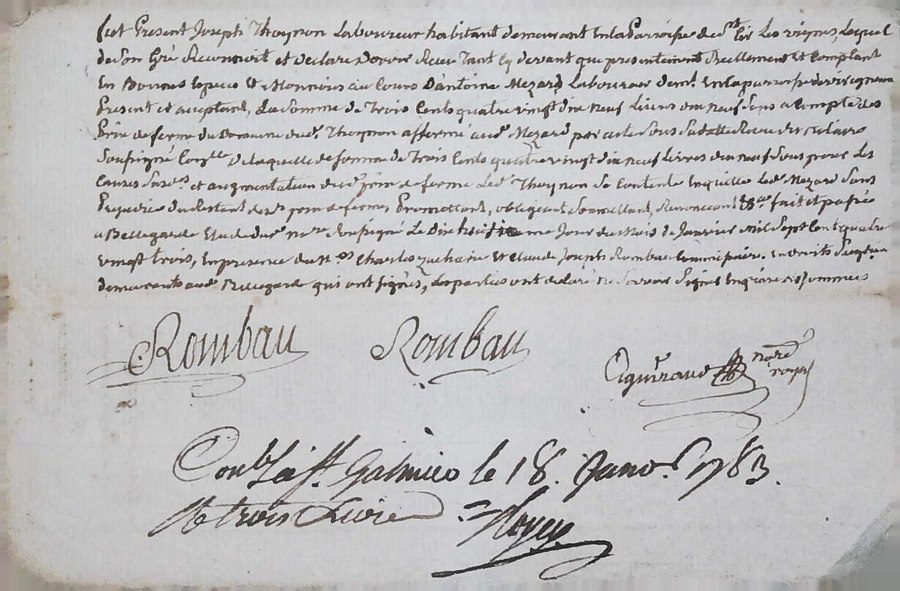 fut Present Joseph Thoynon Laboureur habitant demeurant En la parroisse de St Cir Les vignes, Lequel
de Son Gré Reconnoit et Declare Devoir Receu Tant Cy devant que presentement Reellement et Comptant
En Bonnes Especes et Monnoies au Cours D'antoine Mezard Laboureur demt. En la parroisse de
Present et acceptant, La Somme de Trois Cents quatre vingt dix neuf Livres dix neuf Sous a Compte des
Prix de ferme du Domaine dudt. Thoynon affermé audt. Mezard par acte Sous Sa datte Receu du
Soussigné Laquelle de Somme de Trois Cents quatre vingt dix neuf Livres dix neuf Sous pour Les
Causes Susdes. et de prix de ferme Ledt. Thoynon Se Contente En quitte Ledt. Mezard Sans
Prejudice du Restant desdt. prix de fermes Promettant, obligeant Soumettant, Renonceant &c. fait et passé
a Bellegarde Etude dudt. nore. Soussigné Le Dix huitieme Jour du Mois de Janvier Mil Sept Cent quatre
vingt Trois, En presence de Charles et Claude Joseph Rombau
demeurants audt. Bellegarde qui ont signés, Les parties ont declaré ne Scavoir Signer Enquises et Sommées
Rombau Rombau
Ciguiraud nore royal
Conlé à St. Galmier le 18. Janvr. 1783.
R trois Livres =